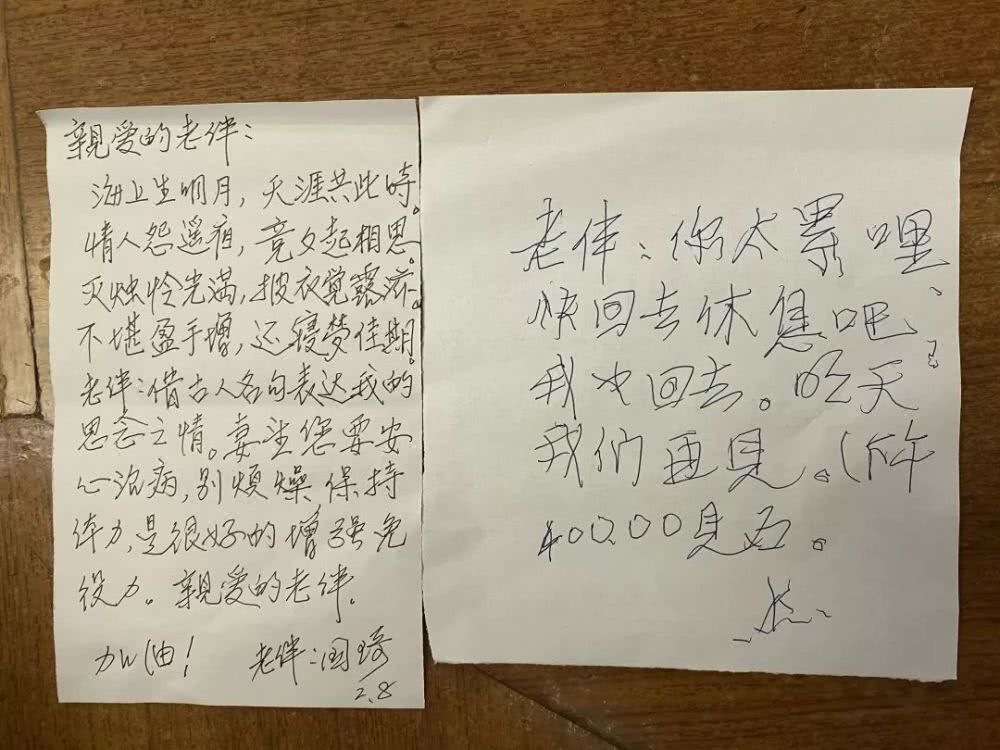 親爱的老伴:
海上生明月,天涯共此時.
情人怨遥夜,竟夕起相思.
灭烛怜光满,披衣觉露滋.
不堪盈手增,还寝梦佳期.
老伴:借古人名句表达我的
思念之情。妻生您要安
心治病,别烦燥保持
体力,是很好的增强免
役力。親爱的老伴.
加油! 老伴:国琦
2.8
老伴:你太累哩、
快回去休息吧,
我也回去。明天
我们再见。(下午
400.00見面。